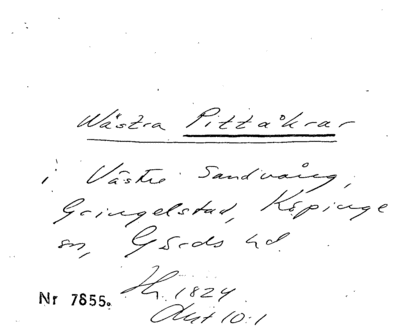 Wästra Pittåkrar
i Västre Sandvång,
Gringelstad, Köpinge
sn, Gärds hd.
Hr. 1824
Akt 10:1
Nr 7855.